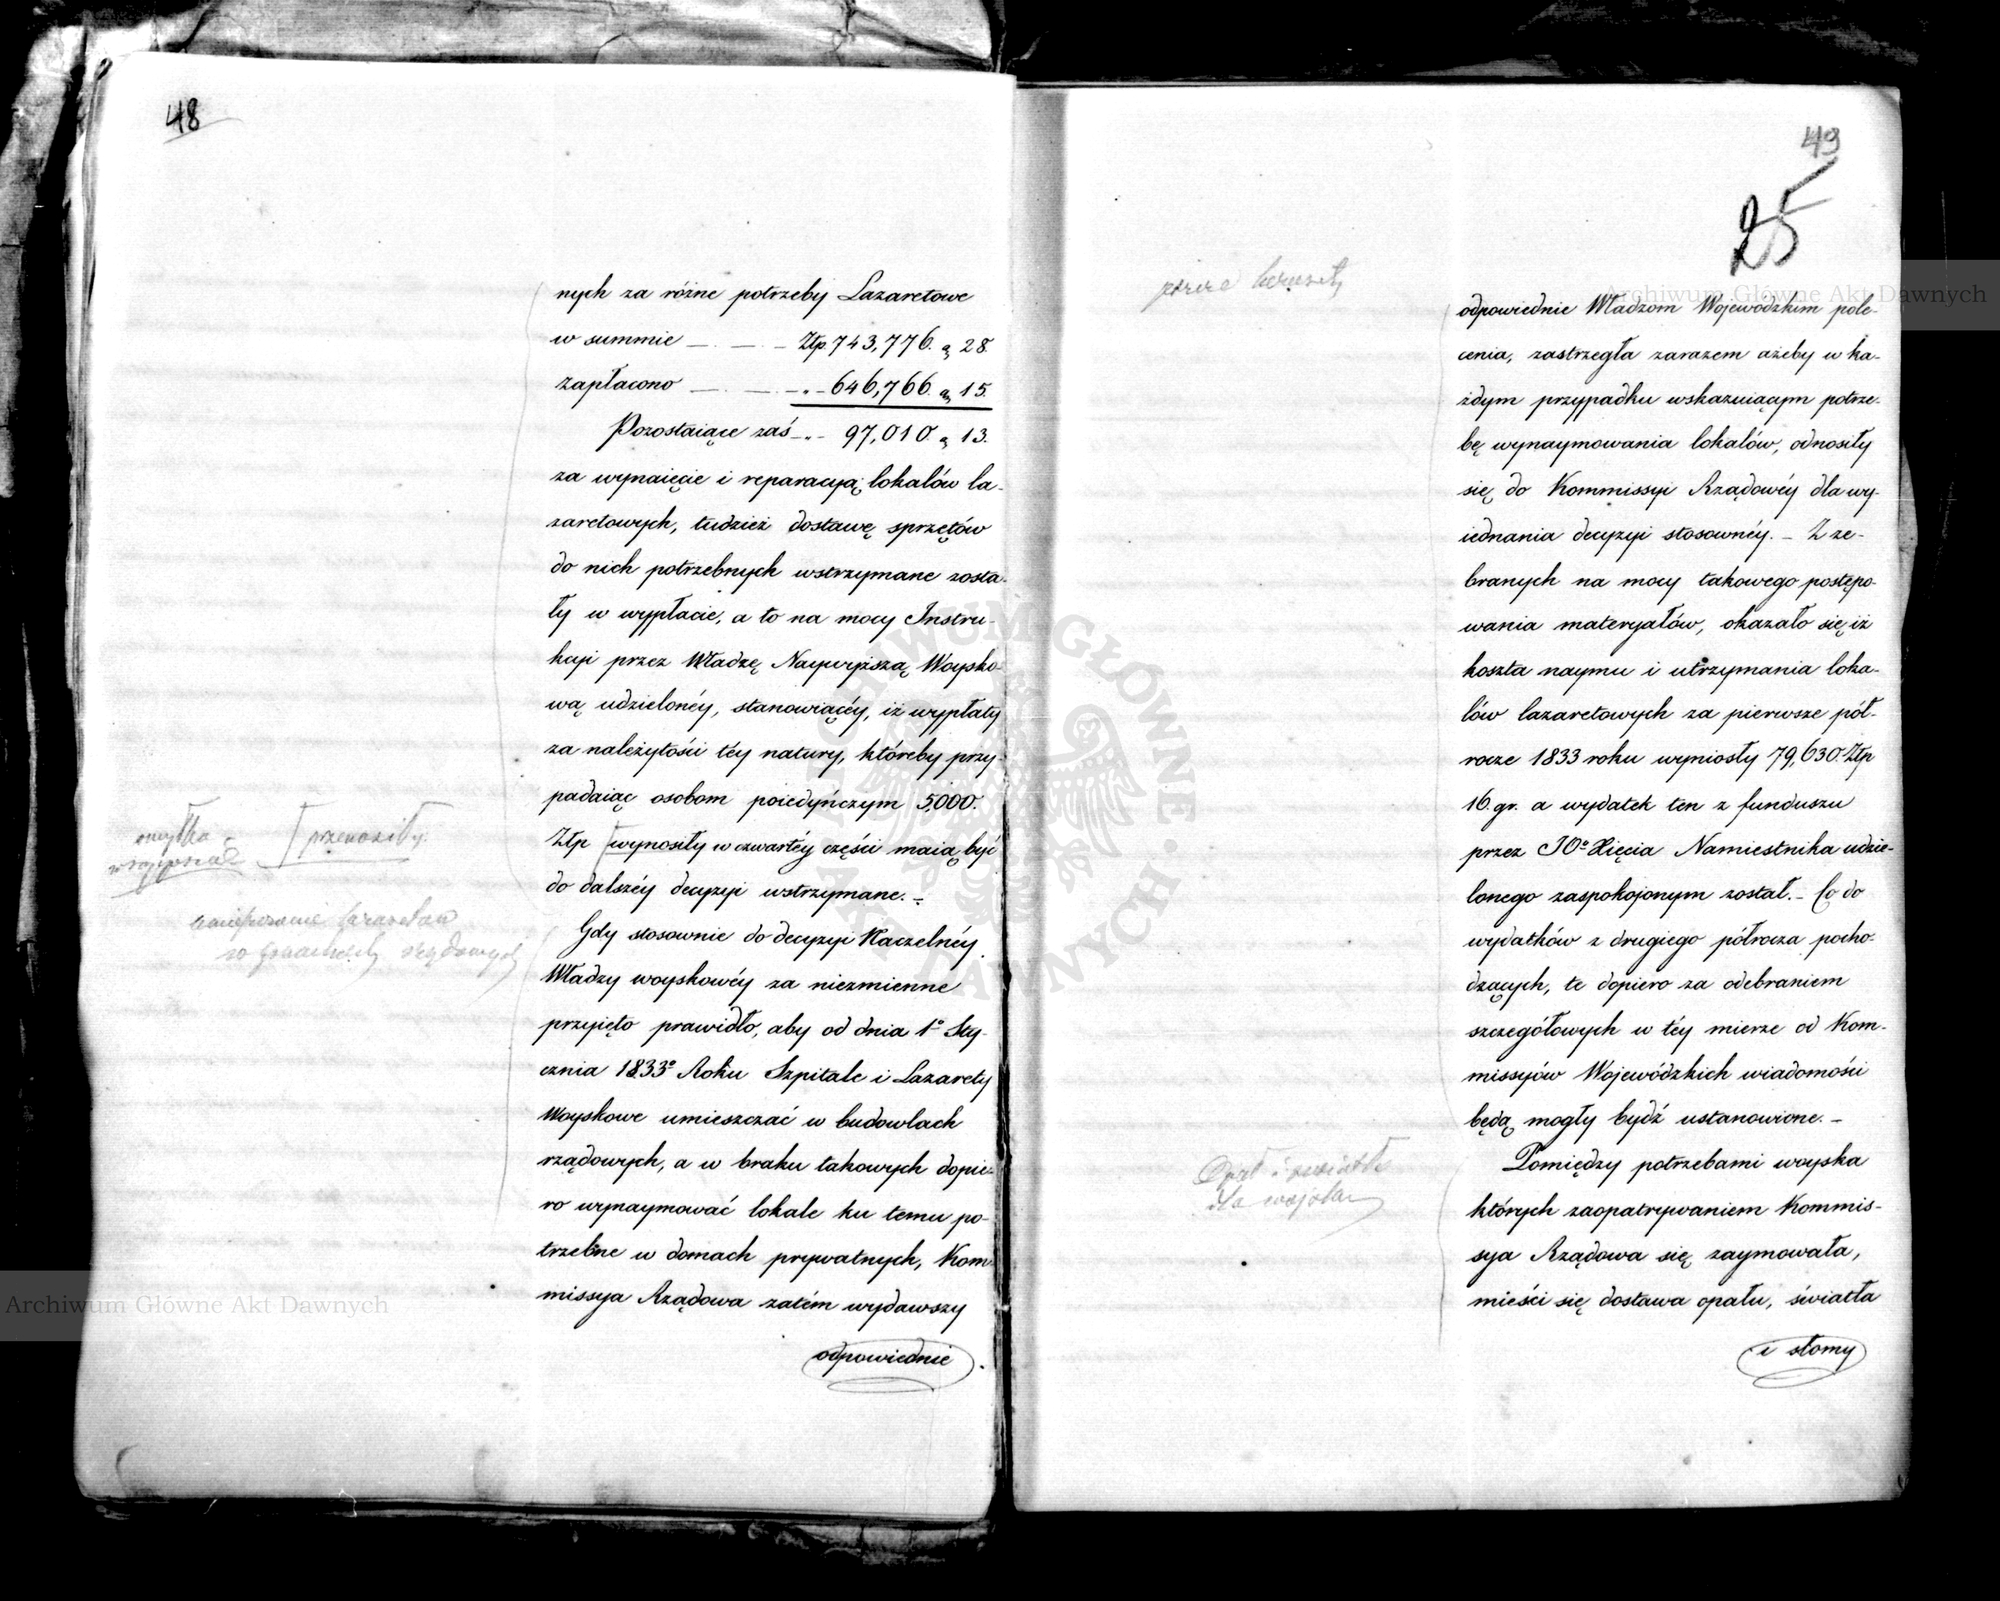 48
nych za różne potrzeby Lazaretowe
w summie — — — Złp. 743,776. g 28.
zapłacono — — — „ — 646,766. g 15.
Pozostaiące zaś — „ — 97,010. g 13.
za wynaięcie i reparacyą lokalów la-
zaretowych, tudzież dostawę sprzętów
do nich potrzebnych wstrzymane zosta-
ły w wypłacie, a to na mocy Instru-
kcji przez Władzę Naywyższą Woysko-
wą udzielonéy, stanowiącéy, iż wypłaty
za należytości téy natury, któreby przy-
padaiąc osobom poiedyńczym 5,000.
Złp wynosiły w czwartéy części maią być
do dalszéy decyzyi wstrzymane. –
omyłka
przenosiły.
Gdy stosownie do decyzyi Naczelnéy
Władzy woyskowéy za niezmienne
przyięto prawidło, aby od dnia 1º Sty-
cznia 1833º Roku Szpitale i Lazarety
Woyskowe umieszczać w budowlach
rządowych, a w braku takowych dopie-
ro wynaymować lokale ku temu po-
trzebne w domach prywatnych, Kom-
missya Rządowa zatém wydawszy
odpowiednie
Archiwum Główne Akt Dawnych
49
25
Archiwum Główne Akt Dawnych
odpowiednie Władzom Wojewódzkim pole-
cenia, zastrzegła zarazem ażeby w ka-
żdym przypadku wskazuiącym potrze-
bę wynaymowania lokalów, odnosiły
się do Kommissyi Rządowéy dla wy-
iednania decyzyi stosownéy. – Z ze-
branych na mocy takowego postępo-
wania materyałów, okazało się iż
koszta naymu i utrzymania loka-
lów lazaretowych za pierwsze pół-
rocze 1833 roku wyniosły 79,630. Złp
16. gr. a wydatek ten z funduszu
przez JOº Xięcia Namiestnika udzie-
lonego zaspokojonym został. – Co do
wydatków z drugiego półrocza pocho-
dzących, te dopiero za odebraniem
szczegółowych w téy mierze od Kom-
missyów Wojewódzkich wiadomości
będą mogły bydź ustanowione. –
Pomiędzy potrzebami woyska
których zaopatrywaniem Kommis-
sya Rządowa się zaymowała,
mieści się dostawa opału, światła
i słomy
Opał i światło
dla wojska
ARCHIWUM GŁÓWNE AKT DAWNYCH